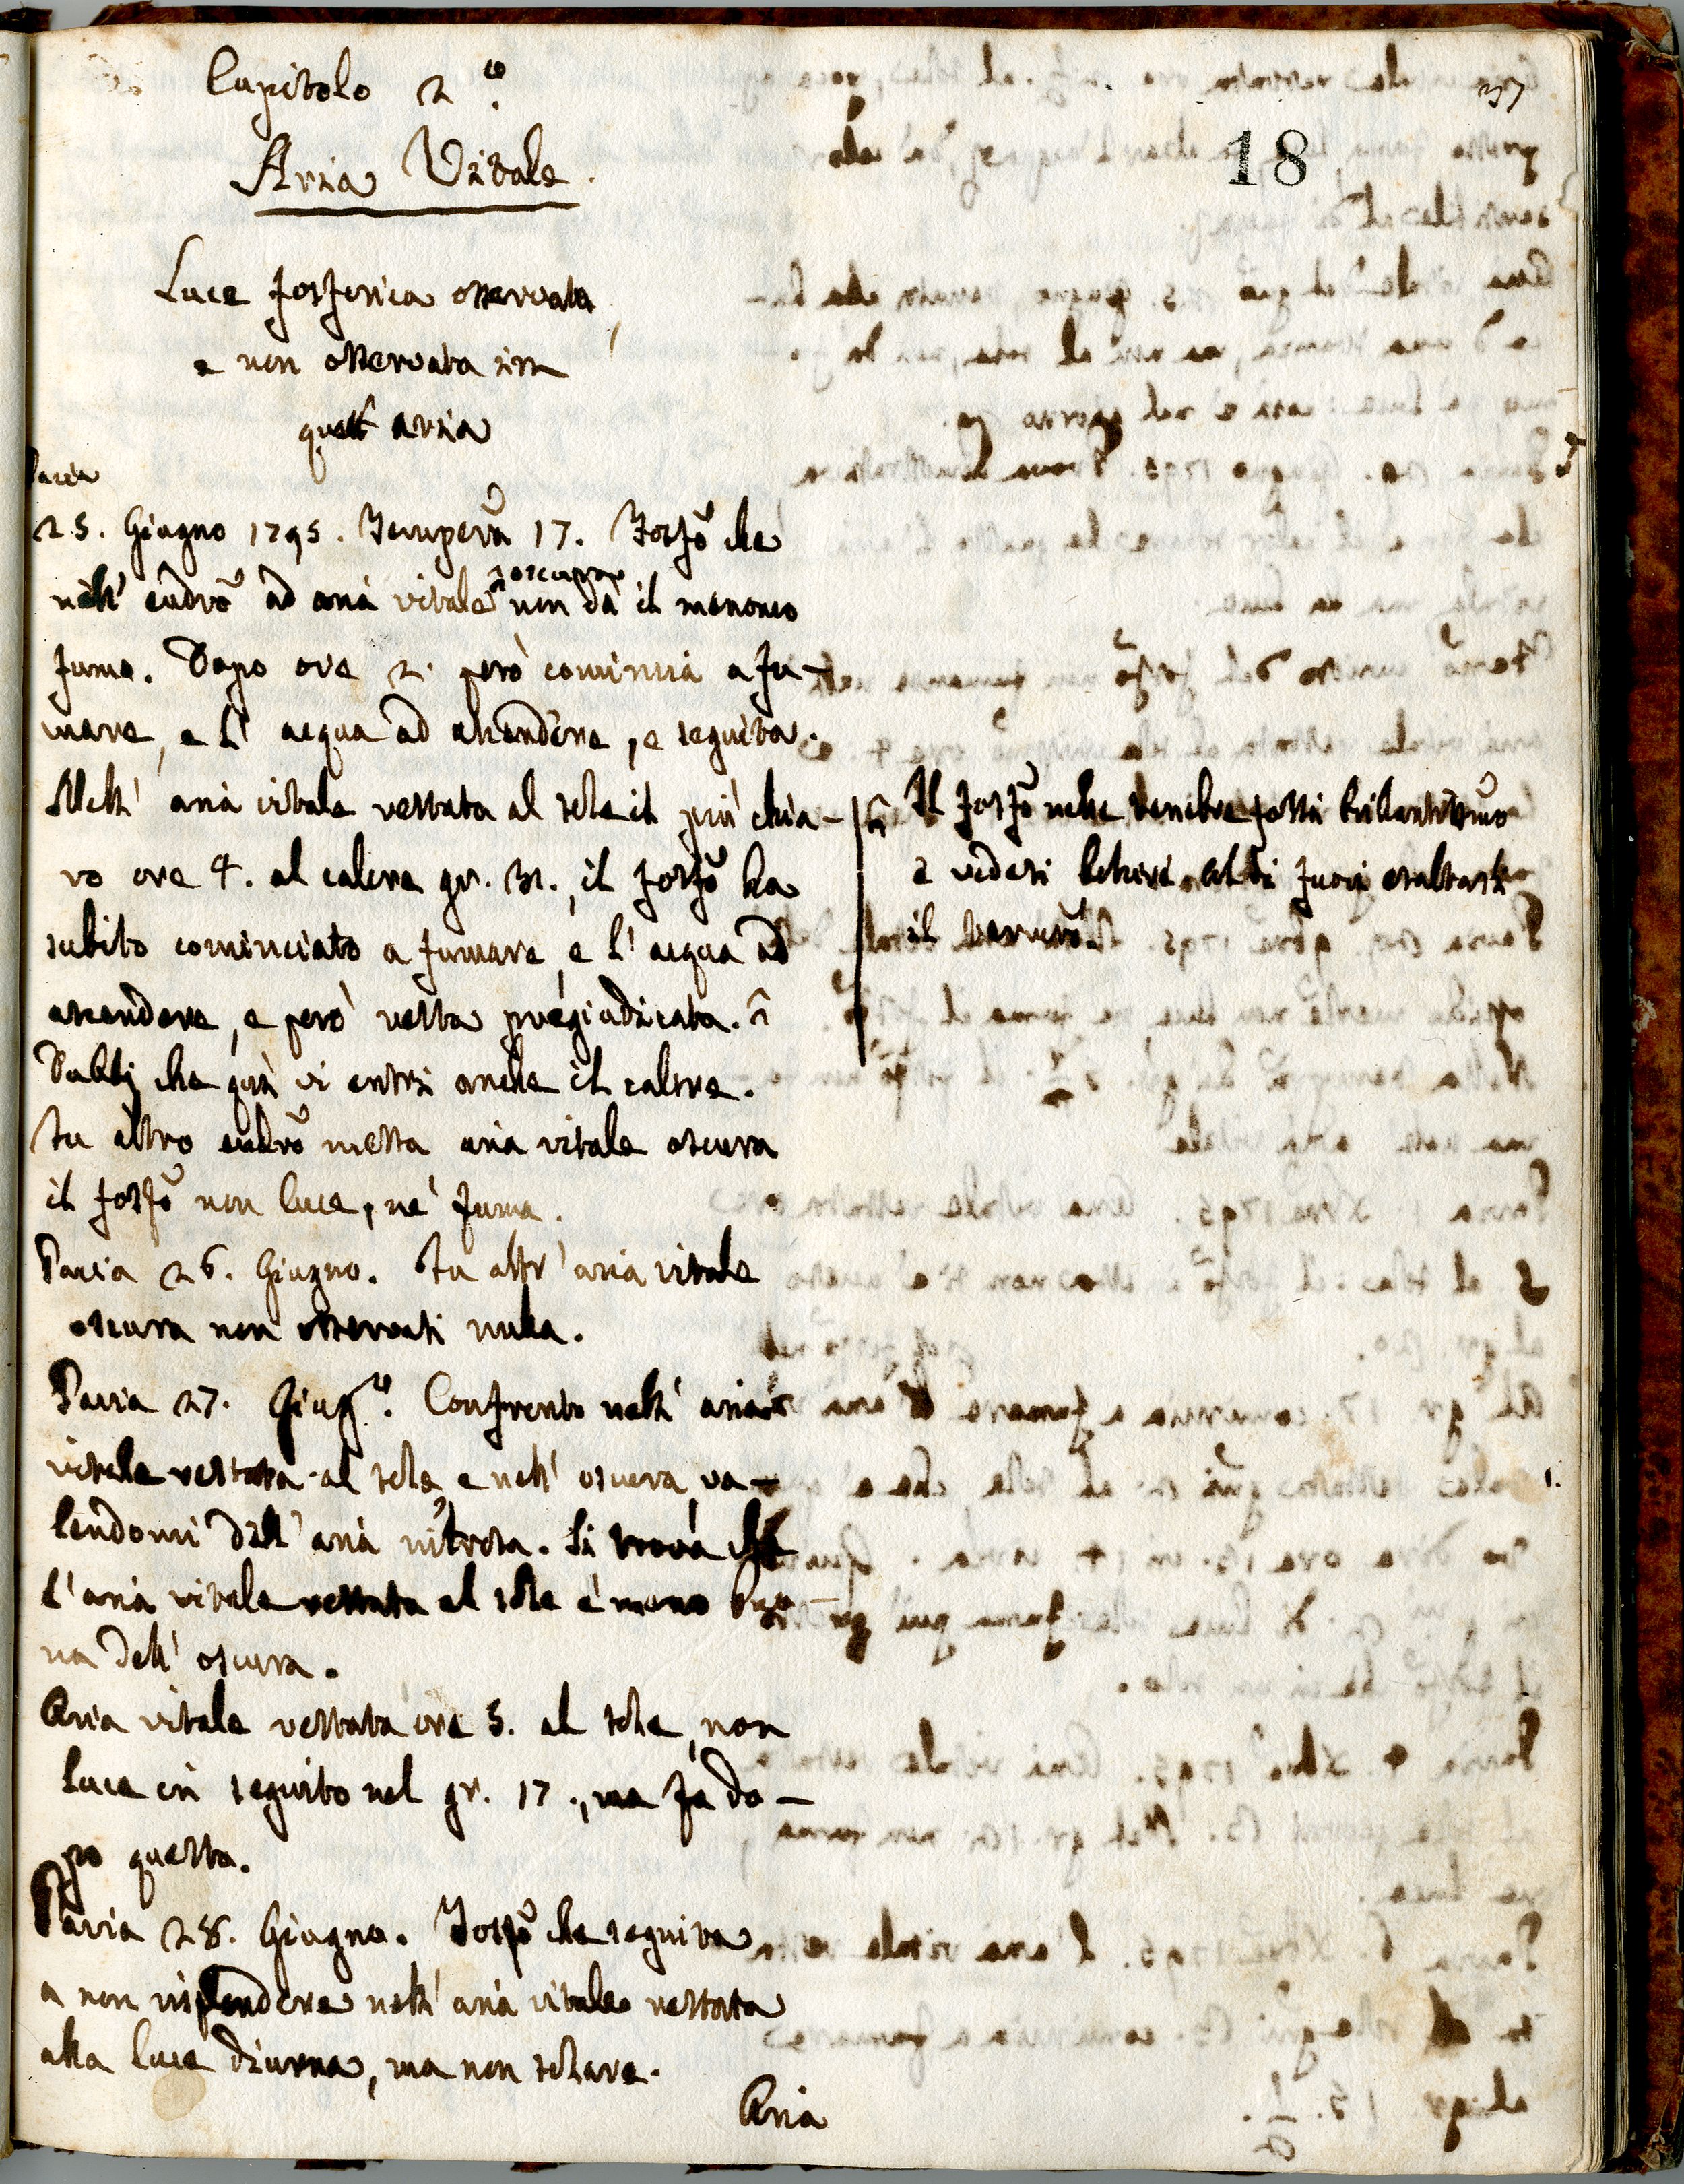 Capitolo 2.º
37
18
Aria Vitale.
Luce fosforica osservata
e non osservata in
quest' aria
Pavia
25. Giugno 1795. Temperª 17. Fosfº che
oscura
nell' eudrº ad aria vitale non dà il menomo
fumo. Dopo ore 2. però comincia a fu-
mare, e l' acqua ad ascendere, e seguita.
Nell' aria vitale restata al sole il più chia-
ro ore 4. al calore gr. 31., il fosfº ha
subito cominciato a fumare, e l' acqua ad
ascendere, e però resta pregiudicata.
Dubbj che quì vi entri anche il calore.
In altro eudrº messa aria vitale oscura
il fosfº non luce, nè fuma.
Pavia 26. Giugno. In altr' aria vitale
oscura non osservasi nulla.
Pavia 27. Giugº. Confronto nell' aria
vitale restata al sole e nell' oscura, va-
lendomi dell' aria nitrosa. Si trova che
l' aria vitale restata al sole è meno buo-
na dell' oscura.
Aria vitale restata ore 5. al sole, non
luce in seguito nel gr. 17., ma fa do-
po questa.
Pavia 28. Giugno. Fosfº che seguita
a non risplendere nell' aria vitale restata
alla luce diurna, ma non solare.
Aria
Il fosfº nelle tenebre fassi brillantissimo
e vedesi bollire, ed di fuori esaltarsi
il